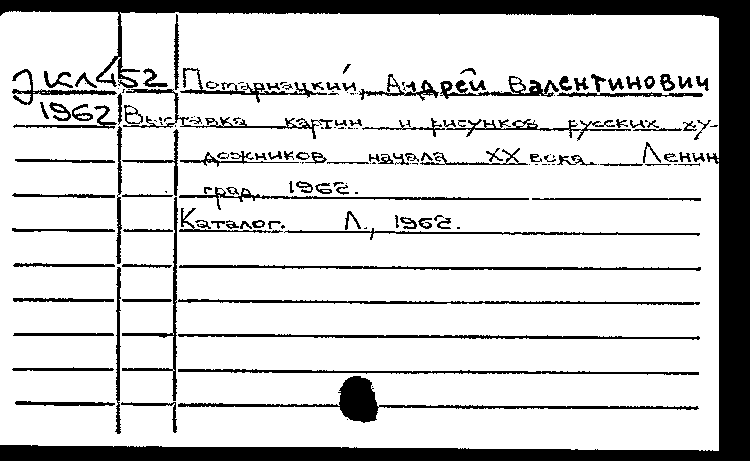 Jкл452 Помарнацкий, Андрей Валентинович
1962 Выставка картин и рисунков русских ху-
дожников начала XX века. Ленин
град, 1962.
Каталог. Л., 1962.